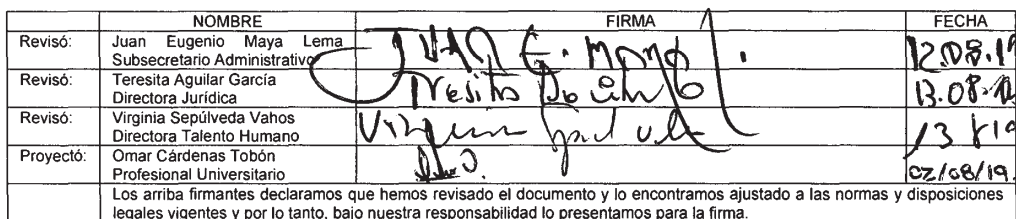 NOMBRE FIRMA FECHA
Revisó: Juan Eugenio Maya Lema
Subsecretario Administrativo
Revisó: Teresita Aguilar García
Directora Jurídica
Revisó: Virginia Sepúlveda Vahos
Directora Talento Humano
Proyectó: Omar Cárdenas Tobón
Profesional Universitario 02/08/19.
Los arriba firmantes declaramos que hemos revisado el documento y lo encontramos ajustado a las normas y disposiciones
legales vigentes y por lo tanto, bajo nuestra responsabilidad lo presentamos para la firma.